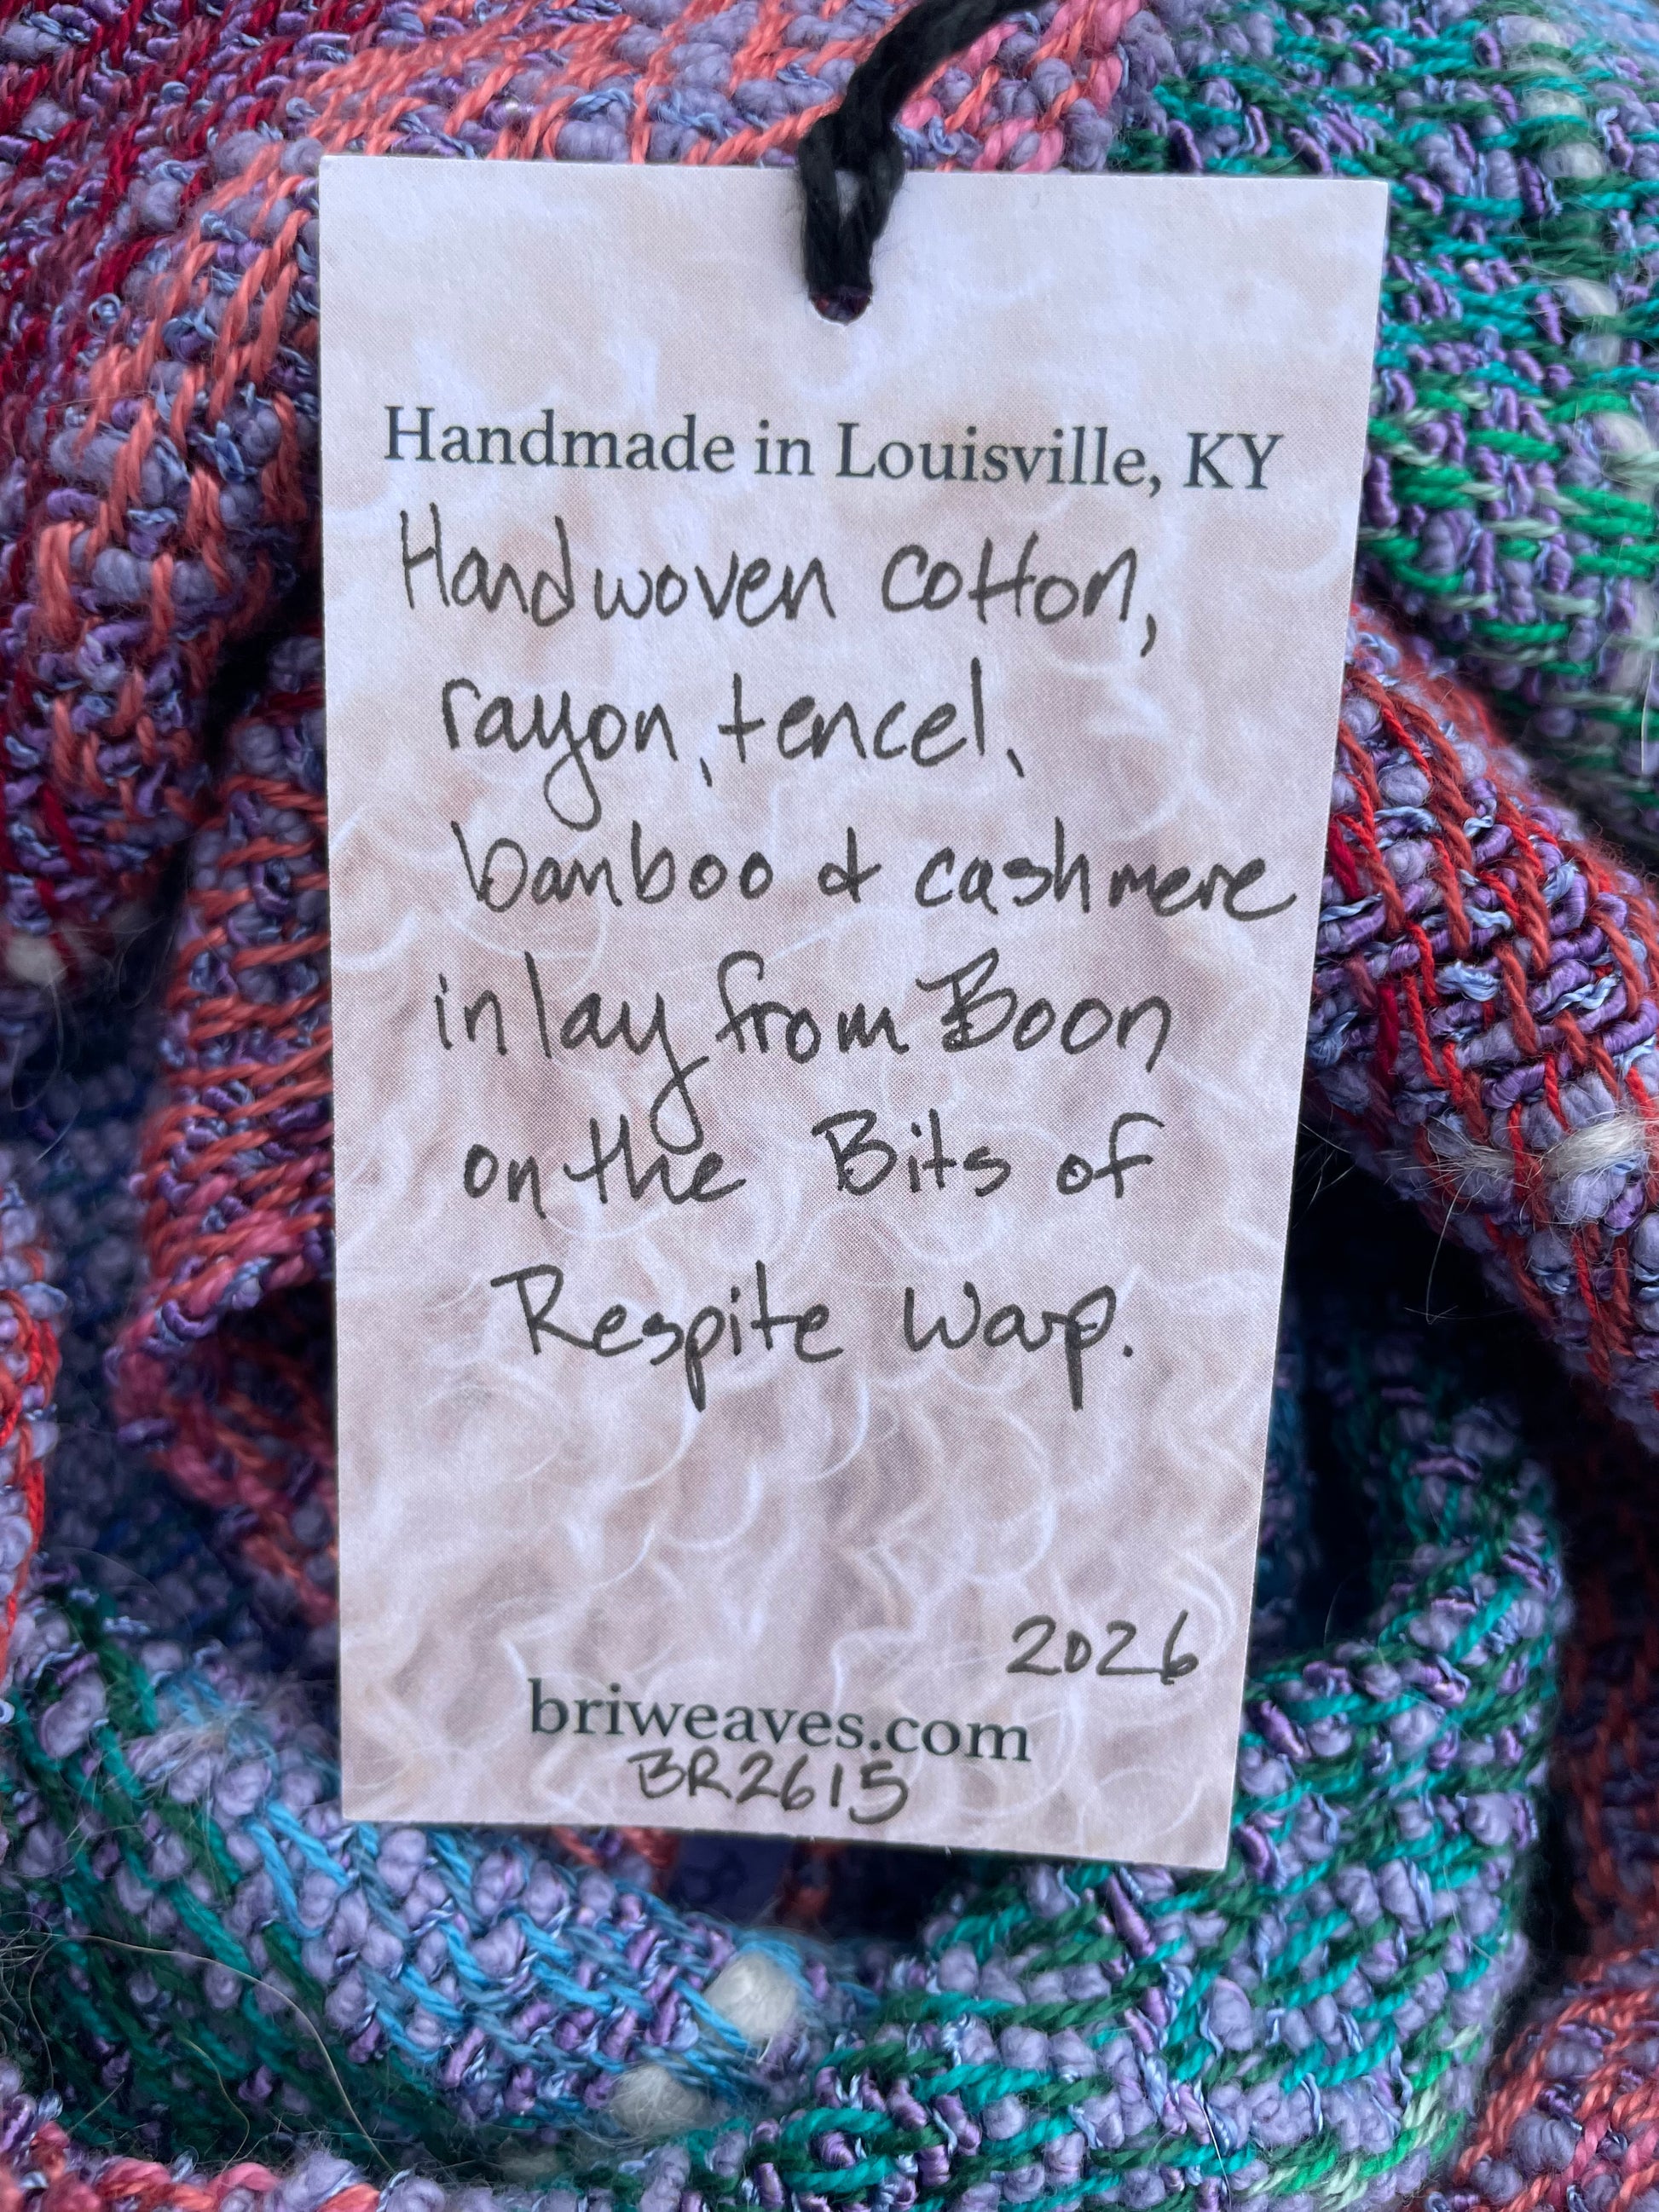 Handmade in Louisville, KY
Handwoven cotton,
rayon, tencel,
bamboo & cashmere
inlay from Boon
on the Bits of
Respite Warp.
2026
briweaves.com
BR2615